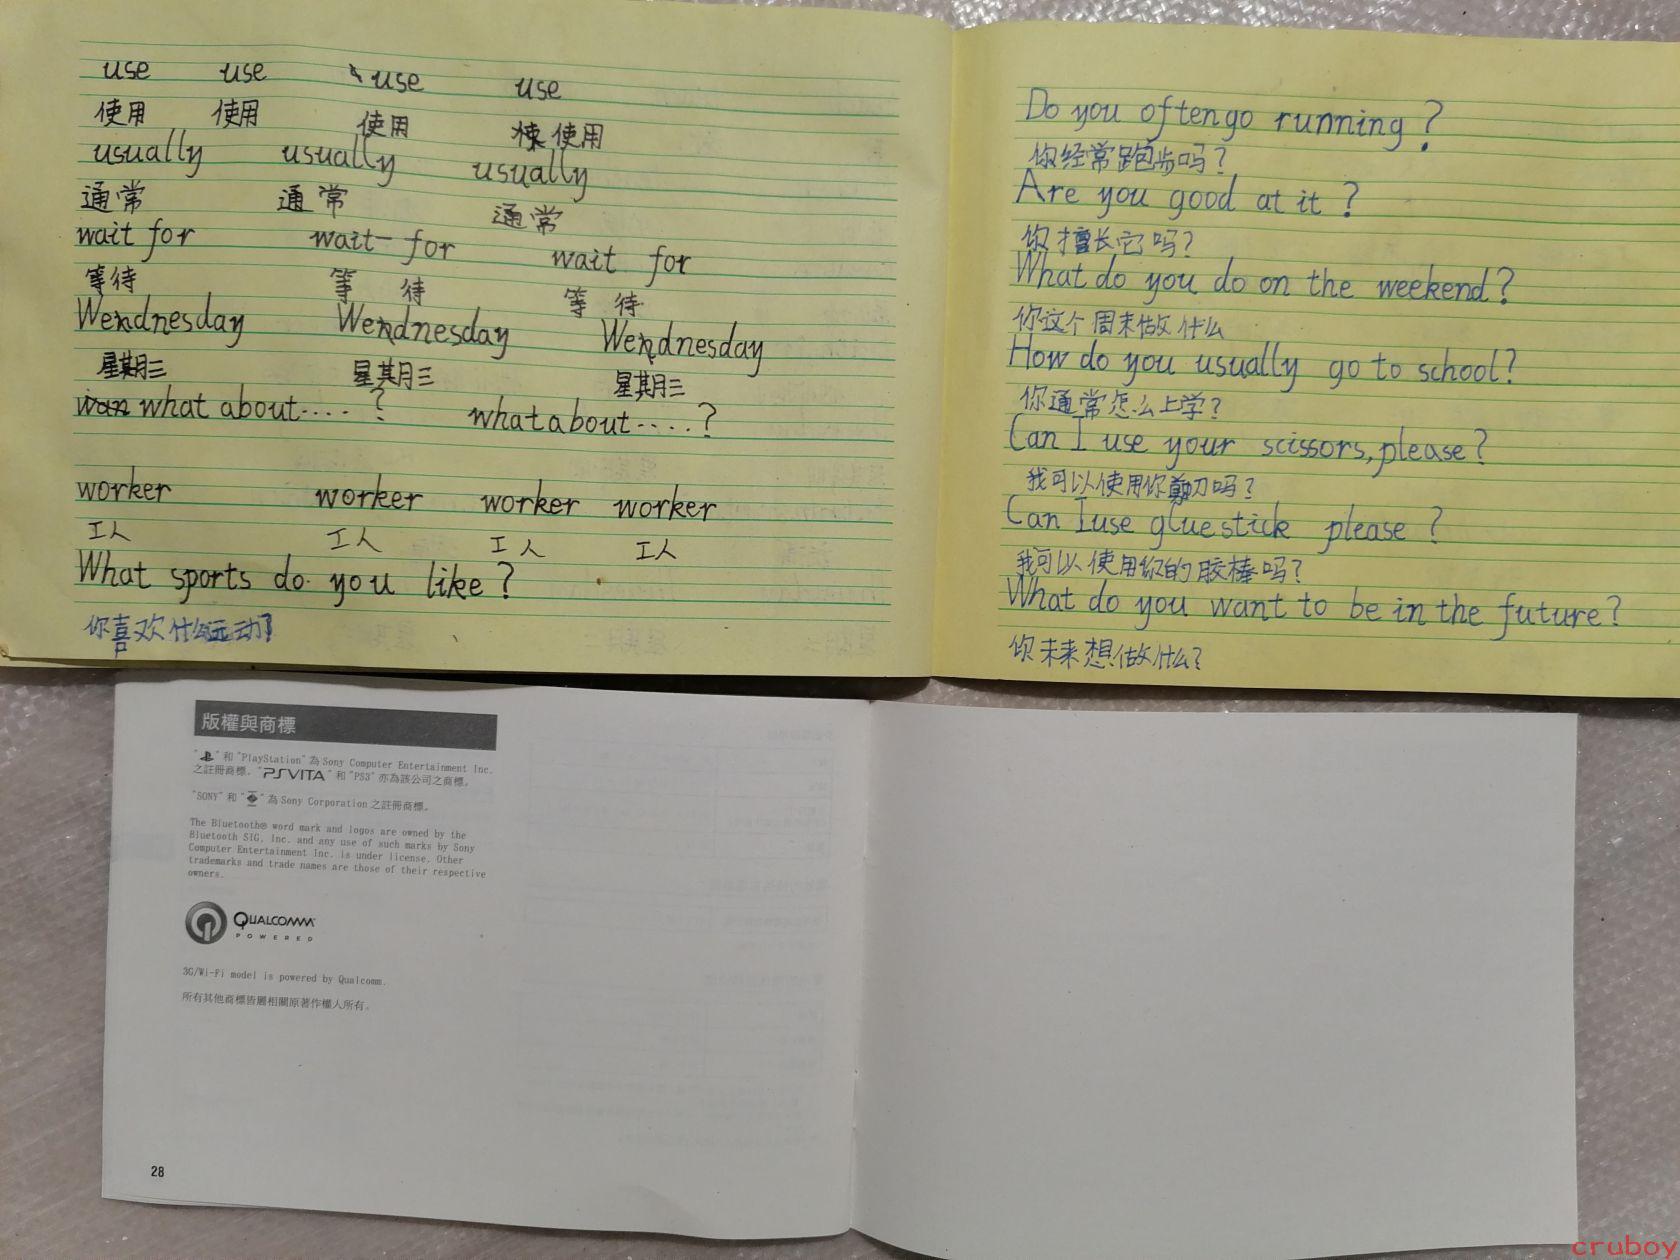 use use use use
使用 使用 使用 使用
usually usually usually
通常 通常 通常
wait for wait for wait for
等待 等待 等待
Wendnesday Wendnesday Wendnesday
星期三 星期三 星期三
what about....? what about....?
worker worker worker worker
工人 工人 工人 工人
What sports do you like?
你喜欢什么运动?
Do you often go running?
你经常跑步吗?
Are you good at it?
你擅长它吗?
What do you do on the weekend?
你这个周末做什么
How do you usually go to school?
你通常怎么上学?
Can I use your scissors, please?
我可以使用你剪刀吗?
Can I use glue stick please?
我可以使用你的胶棒吗?
What do you want to be in the future?
你未来想做什么?
版權與商標
" " 和 "PlayStation" 為 Sony Computer Entertainment Inc.
之註冊商標。"PSVITA" 和 "PS3" 亦為該公司之商標。
"SONY" 和 " " 為 Sony Corporation 之註冊商標。
The Bluetooth® word mark and logos are owned by the
Bluetooth SIG, Inc. and any use of such marks by Sony
Computer Entertainment Inc. is under license. Other
trademarks and trade names are those of their respective
owners.
QUALCOMM
POWERED
3G/Wi-Fi model is powered by Qualcomm.
所有其他商標皆屬相關原著作權人所有。
28
cruboy